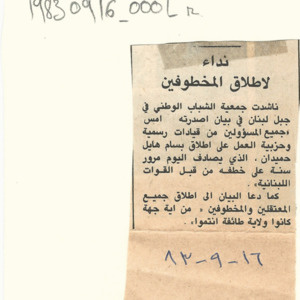 19830916_000L r
نداء
لاطلاق المخطوفين
ناشدت جمعية الشباب الوطني في
جبل لبنان في بيان اصدرته امس
«جميع المسؤولين من قيادات رسمية
وحزبية العمل على اطلاق بسام هايل
حميدان، الذي يصادف اليوم مرور
سنة على خطفه من قبل القوات
اللبنانية»،
كما دعا البيان الى اطلاق جميع
المعتقلين والمخطوفين «من اية جهة
كانوا ولاية طائفة انتموا».
١٦-٩-٨٣